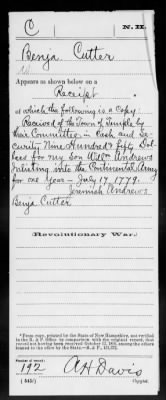 C N. H.
Benja Cutter
Appears as shown below on a
Receipt
of which the following is a Copy
Received of the Town of Temple by
their Committee in Cash and Se-
curity Nine Hundred & fifty Dol-
lars for my Son Willm Andrews
Inlisting into the Continental Army
for one Year - July 17, 1779.
Jeremiah Andrews
Benja Cutter
Revolutionary War.
*From copy, printed by the State of New Hampshire, not verified
in the R. & P. Office by comparison with the original record, that
record not having been received
Number of record:
192
A H Davis
(545) Copyist.